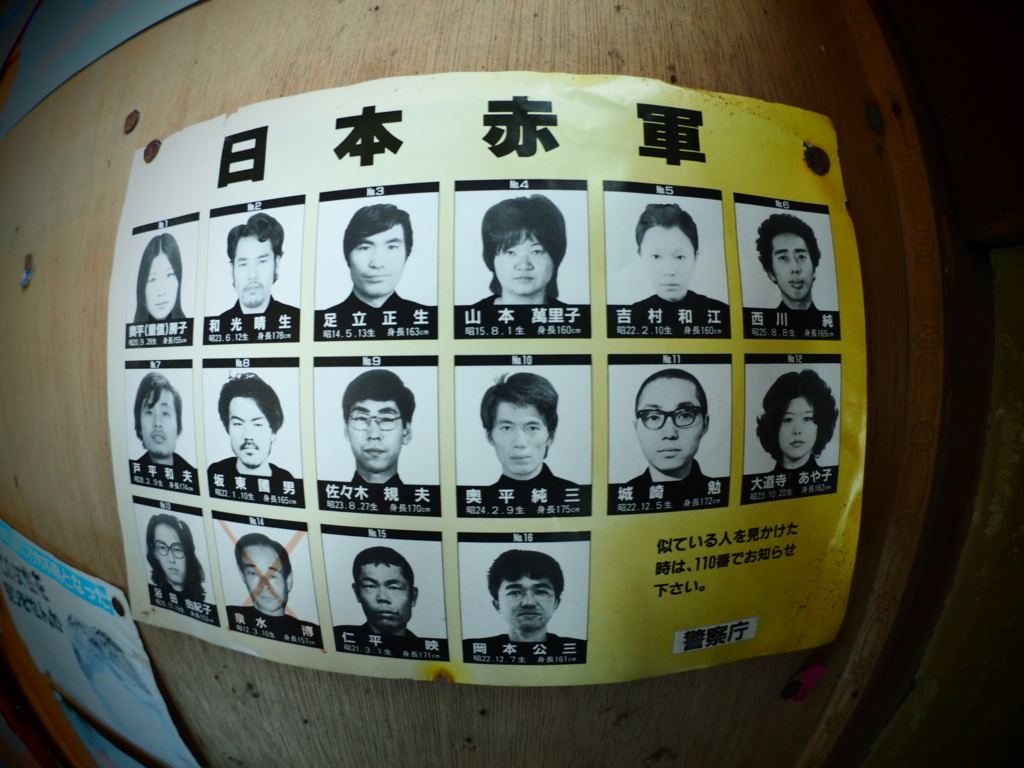 日本赤軍
No.1
奥平(重信)房子
昭20.9.28生 身長155cm
No.2
和光晴生
昭23.6.12生 身長178cm
No.3
足立正生
昭14.5.13生 身長163cm
No.4
山本萬里子
昭15.8.1生 身長160cm
No.5
吉村和江
昭22.2.10生 身長160cm
No.6
西川純
昭25.8.8生 身長165cm
No.7
戸平和夫
昭28.2.9生 身長174cm
No.8
坂東國男
昭22.1.10生 身長165cm
No.9
佐々木規夫
昭23.8.27生 身長170cm
No.10
奥平純三
昭24.2.9生 身長175cm
No.11
城崎勉
昭22.12.5生 身長172cm
No.12
大道寺あや子
昭23.10.20生 身長162cm
No.13
浴田由紀子
No.14
泉水博
昭12.3.10生 身長157cm
No.15
仁平映
昭21.3.1生 身長171cm
No.16
岡本公三
昭22.12.7生 身長161cm
似ている人を見かけた
時は、110番でお知らせ
下さい。
警察庁